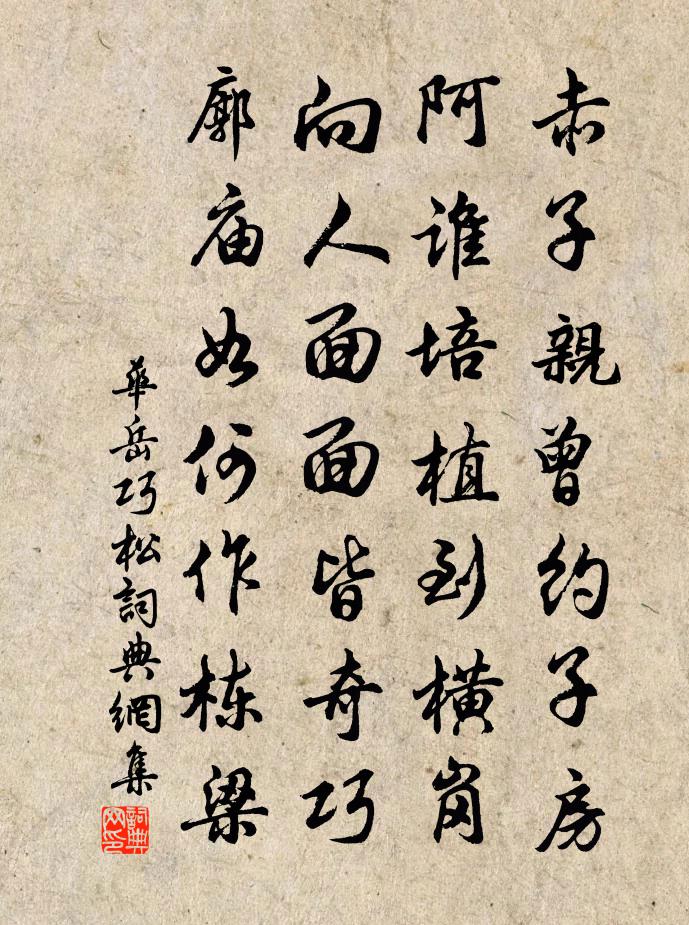 赤子親曾約子房
阿誰培植到橫岗
向人面面皆奇巧
廓庙如何作栋梁
華岳巧松詞典網集
詞典网印